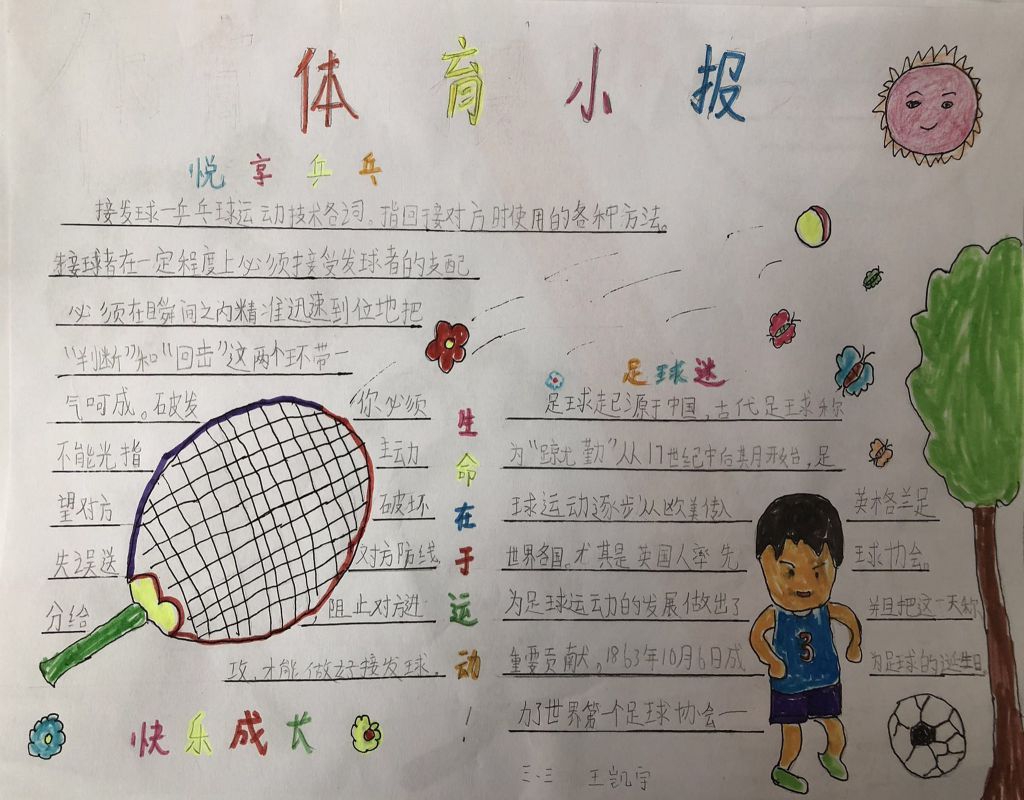 体育小报
悦享乒乓
接发球一乒乓球运动技术名词。指回接对方时使用的各种方法。
接球者在一定程度上必须接受发球者的支配
必须在瞬间之内精准迅速到位地把
“判断”和“回击”这两个环带一
气呵成。石皮发 你必须
不能光指 主动
望对方 破坏
失误送 对方防线
分给 ,阻止对方进
攻,才能做好接发球。
快乐成长
生命在于运动!
足球迷
足球起源于中国,古代足球称
为“蹴鞠”从17世纪中后其月开始,足
球运动逐步从欧美传入 英格兰足
世界各国。尤其是英国人率先 球协会。
为足球运动的发展做出了 并且把这一天称
重要贡献。1863年10月6日成 为足球的诞生日
力了世界第一个足球协会一
3
三、三 王凯宇